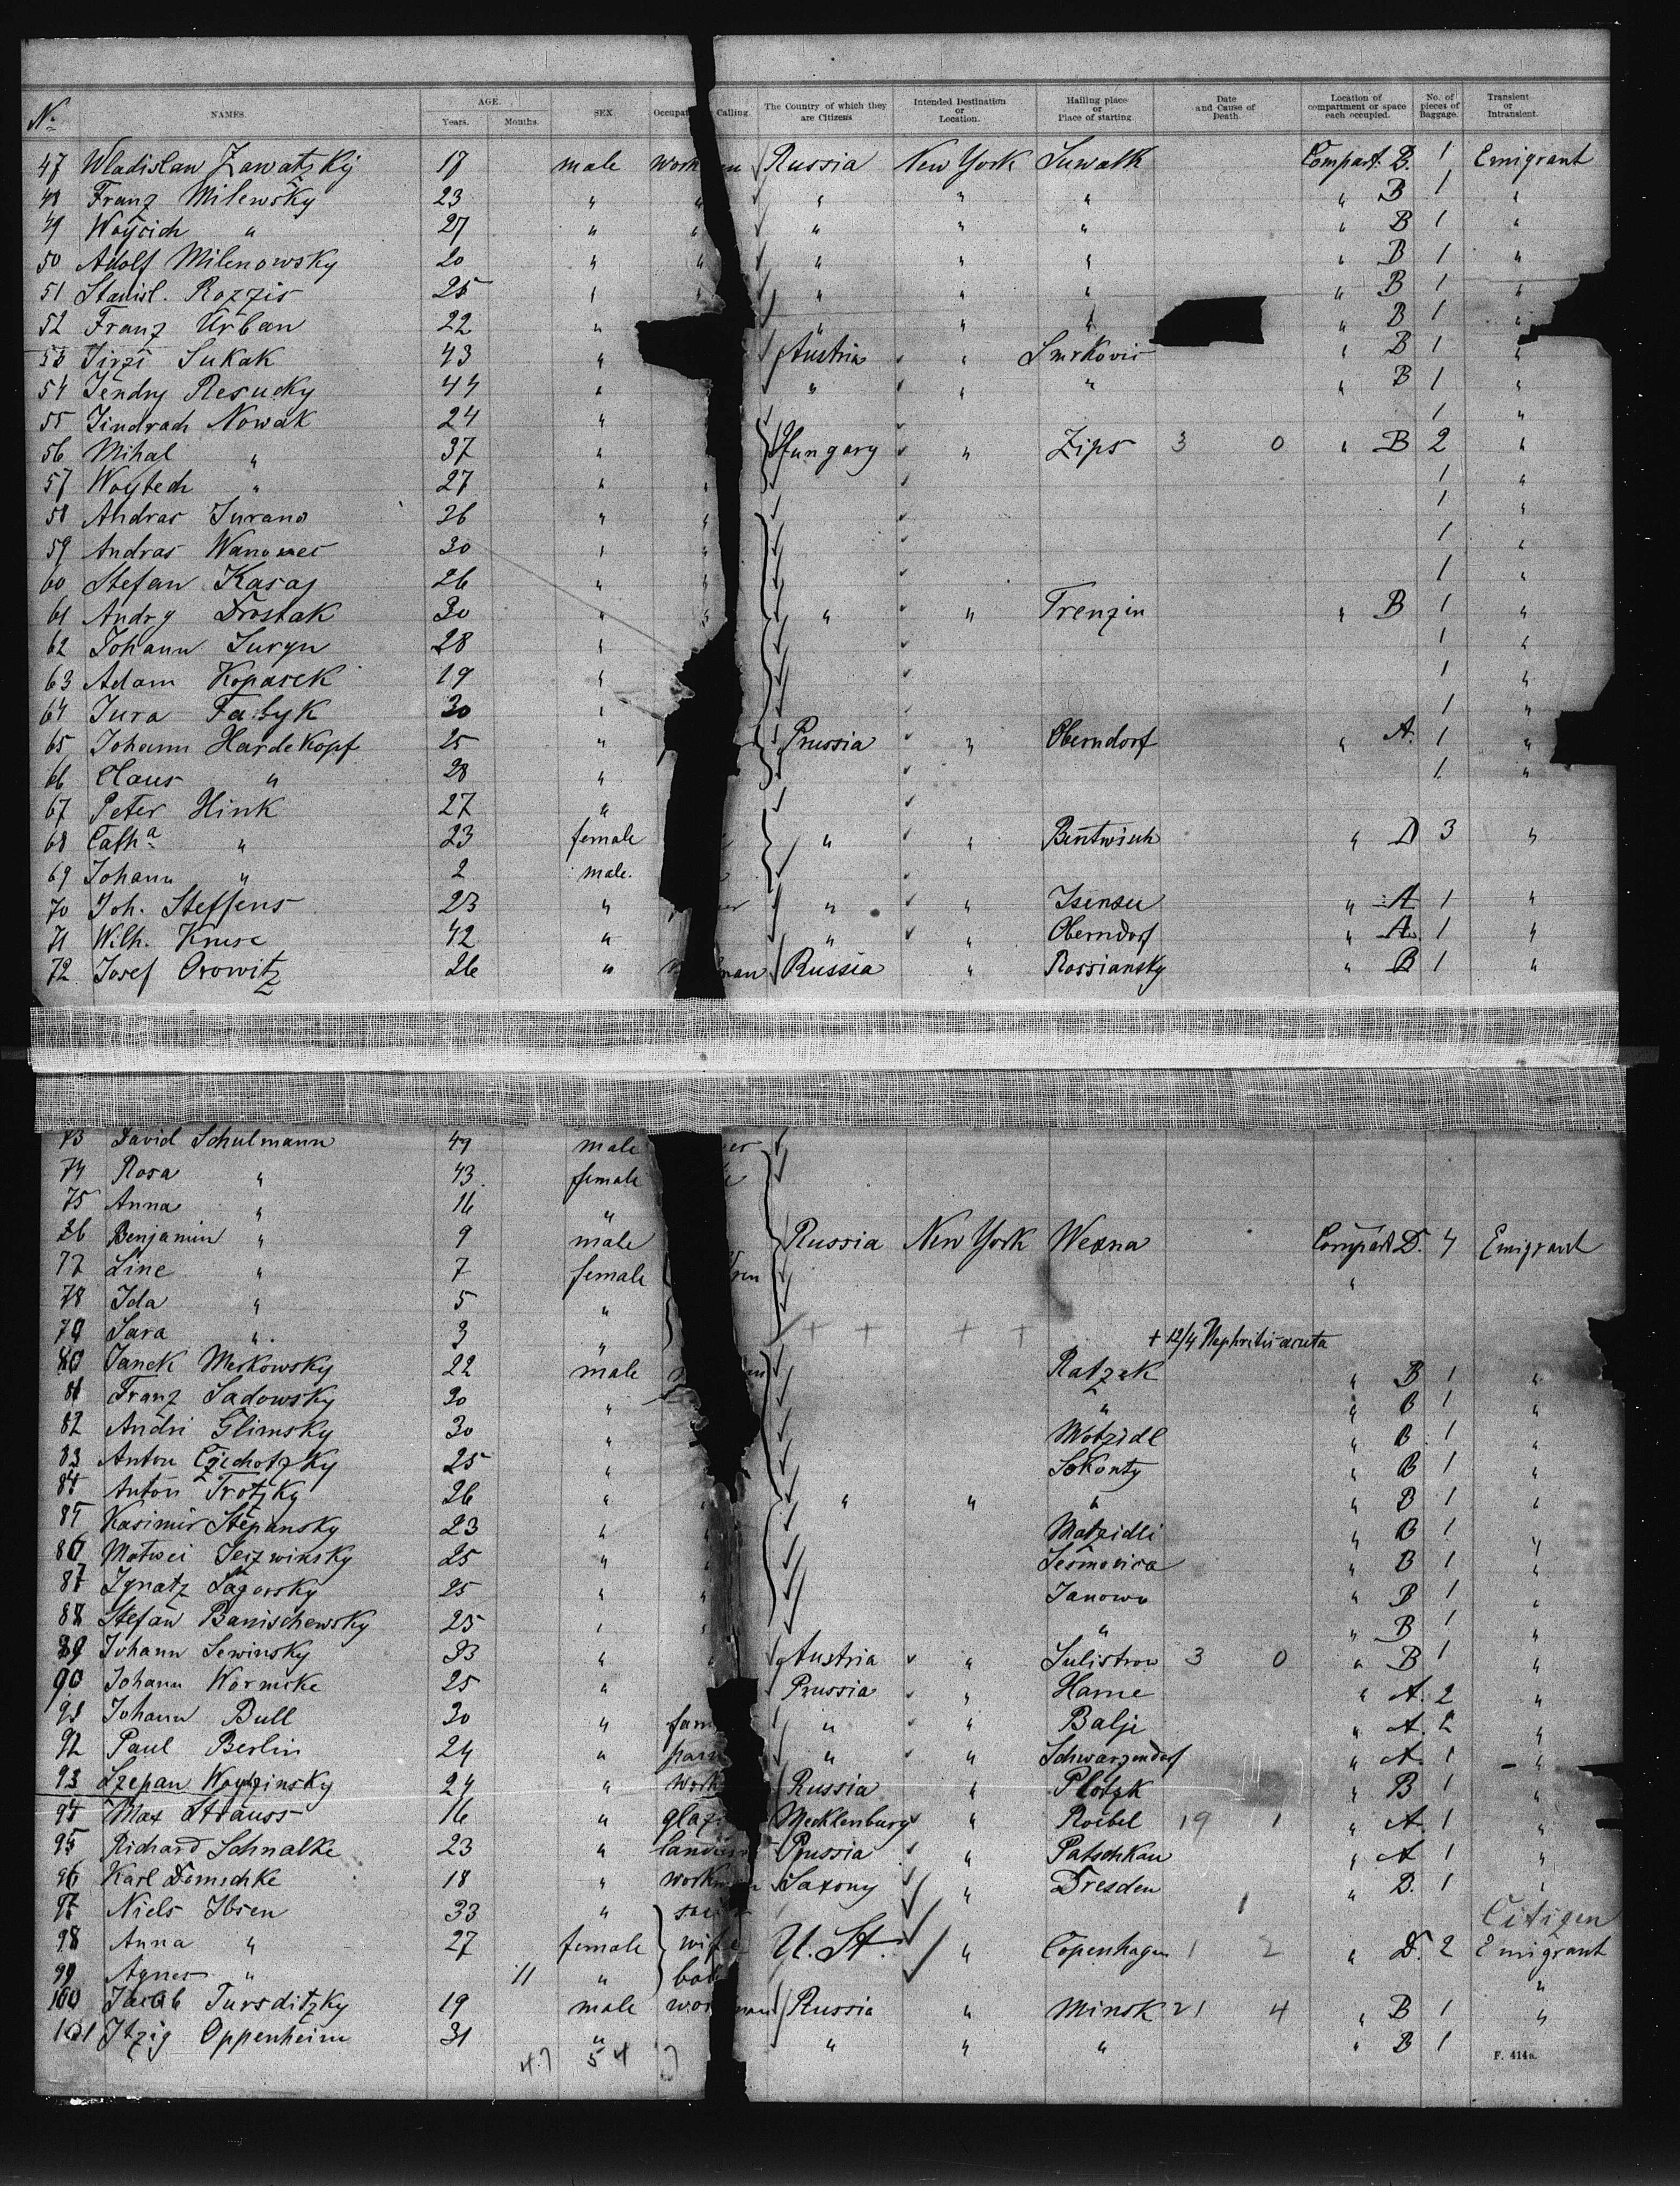 No. NAMES. AGE. Years. Months. SEX. Occupa Calling. The Country of which they are Citizens Intended Destination or Location. Hailing place or Place of starting. Date and Cause of Death. Location of compartment or space each occupied. No. of pieces of Baggage. Transient or Intransient.
47 Wladislaw Zawatzky 17 male work n Russia New York Suwalk Compart. B. 1 Emigrant
48 Franz Milewsky 23 " " " " " " B 1 "
49 Woycich " 27 " " " " " " B 1 "
50 Adolf Milenowsky 20 " " " " " " B 1 "
51 Stanisl. Rozzis 25 " " " " " " B 1 "
52 Franz Urban 22 " " " " " B 1 "
53 Jirzi Sukak 43 " Austria " Smrkovic " B 1 "
54 Jendry Resucky 44 " " " " " B 1 "
55 Jindrach Nowak 24 " 1 "
56 Mihal " 37 " Hungary " Zips 3 0 " B 2 "
57 Woytech " 27 " " 1 "
58 Andras Jurano 26 " " 1 "
59 Andras Wanower 30 " " 1 "
60 Stefan Kasaj 26 " " 1 "
61 Andry Drostak 30 " " " " Trenzin " B 1 "
62 Johann Suryn 28 " 1 "
63 Adam Kopasek 19 " 1 "
64 Jura Fabyk 30 " 1 "
65 Johann Hardekopf 25 " Prussia " Oberndorf " A. 1 "
66 Claus " 28 " 1 "
67 Peter Hink 27 "
68 Catha " 23 female " " Bentwisch " D 3 "
69 Johann " 2 male.
70 Joh. Steffens 23 " er " " Isensee " A 1 "
71 Wilh. Kruse 42 " " " Oberndorf " A 1 "
72 Josef Orowitz 26 " man Russia " Rossiansky " B 1 "
73 David Schulmann 49 male er
74 Rosa " 43 female
75 Anna " 16 "
76 Benjamin " 9 male Russia New York Wexna Compart D. 4 Emigrant
77 Line " 7 female ren "
78 Ida " 5 "
79 Sara " 3 " + + + + + 12/4 Nephritis acuta
80 Janek Merkowsky 22 male Ratzek " B 1 "
81 Franz Sadowsky 20 " " " B 1 "
82 Andri Glimsky 30 " Motzidl " B 1 "
83 Anton Czichotzky 25 " Sokonty " B 1 "
84 Anton Trotzky 26 " " " " " B 1 "
85 Kasimir Stepansky 23 " " Matzidli " B 1 "
86 Matwei Jeizwinsky 25 " " " B 1 "
87 Ignatz Sagorsky 25 " " Janowo " B 1 "
88 Stefan Banischewsky 25 " " " " B 1 "
89 Johann Lewinsky 33 " " Austria " Sulistrow 3 0 " B 1 "
90 Johann Warmske 25 " Prussia " Harne " A. 2 "
91 Johann Bull 30 " farm " " Balje " A. 2 "
92 Paul Berlin 24 " " " Schwarzendorf " A. 1 "
93 Szepan Woytzinsky 24 " work Russia " Plotzk " B 1 "
94 Max Strauss 16 " glaz Mecklenburg " Roebel 19 1 " A. 1 "
95 Richard Schmalke 23 " Prussia " Patschkau " A 1 "
96 Karl Demschke 18 " workm n Saxony " Dresden " D. 1 "
97 Niels Ibsen 33 " 1 Citizen
98 Anna " 27 female wife U. St. " Copenhagen 1 2 " D. 2 Emigrant
99 Agnes " 11 " bab "
100 Jacob Tursditzky 19 male wor man Russia " Minsk 21 4 " B 1 "
101 Itzig Oppenheim 31 " " " " " B 1
47 54
F. 414a.